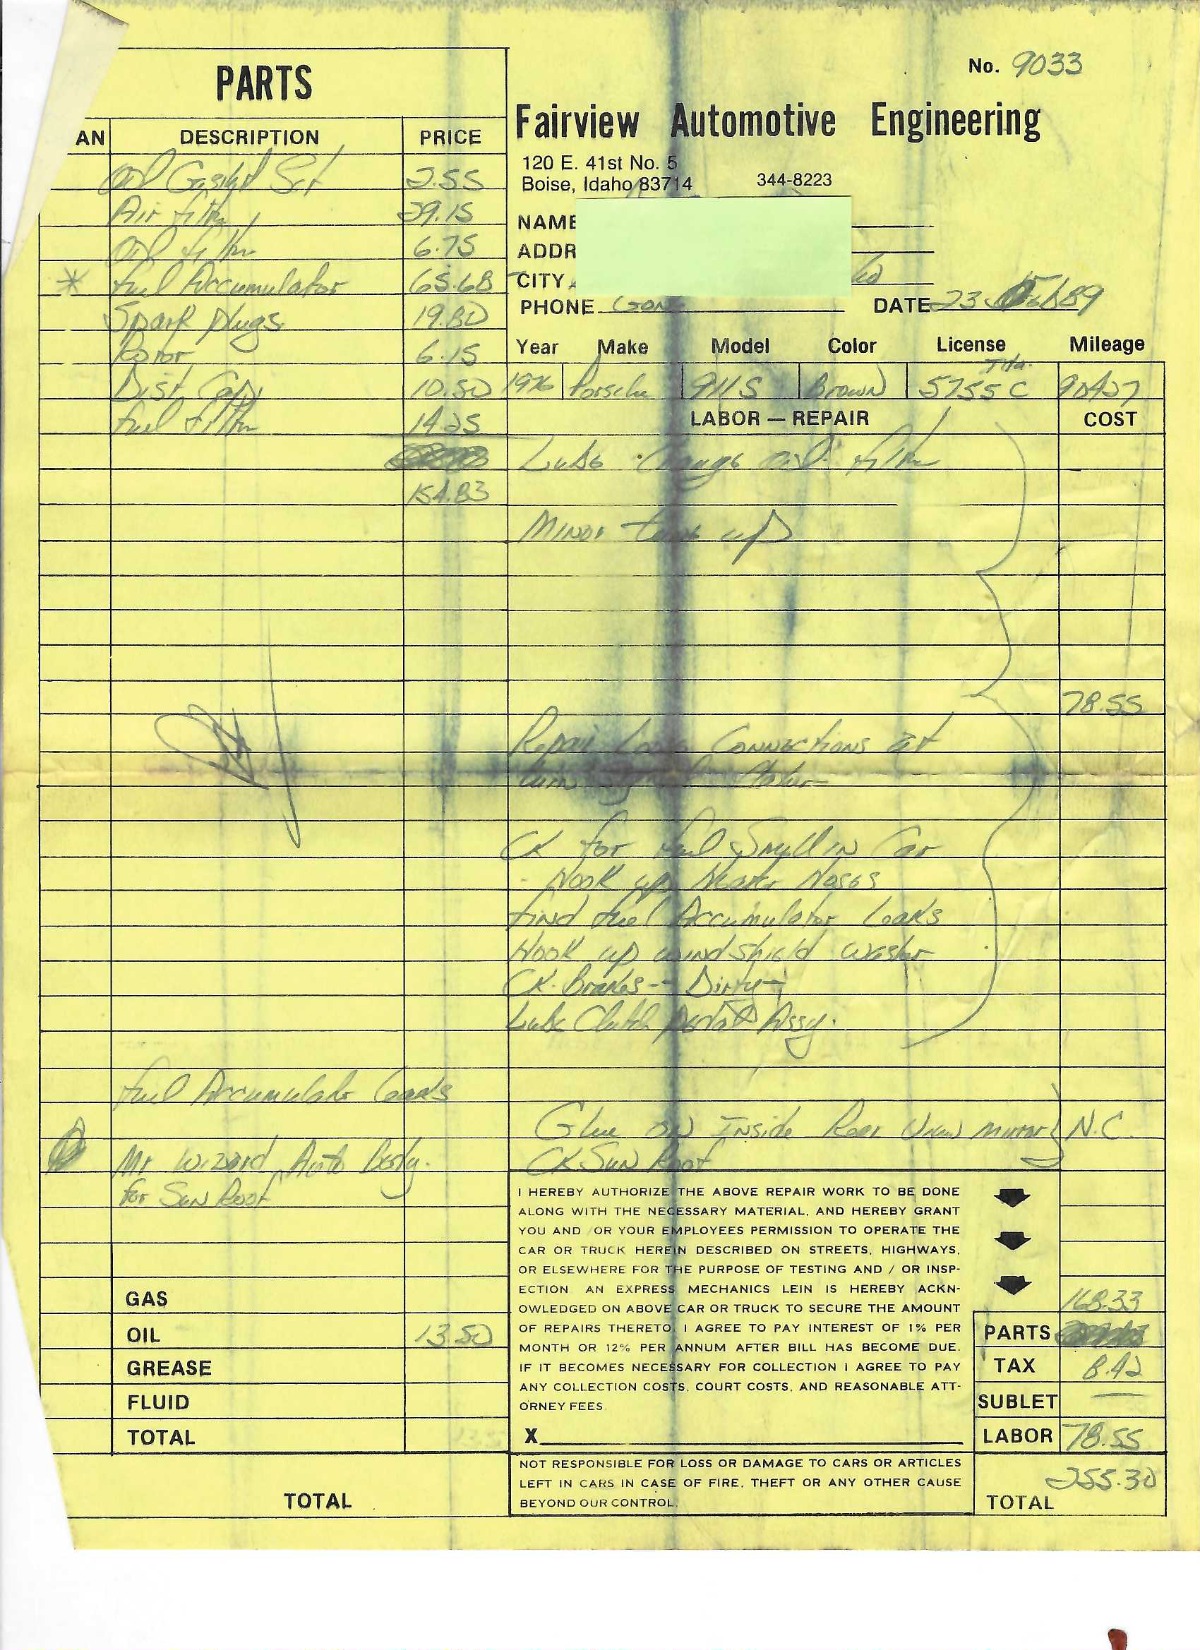 No. 9033
PARTS
Fairview Automotive Engineering
120 E. 41st No. 5
Boise, Idaho 83714 344-8223
AN DESCRIPTION PRICE
Oil Gasket Set 2.55
Air filter 29.15
Oil filter 6.75
* Fuel Accumulator 65.68
Spark plugs 19.80
Rotor 6.15
Dist Cap 10.50
Fuel filter 14.25
154.83
NAME
ADDR
CITY,
PHONE DATE 23 89
Year Make Model Color License Mileage
1976 Porsche 911S Brown 5755C 90427
LABOR — REPAIR COST
Lube change oil filter
Minor tune up
78.55
Repair Loose Connections at
turn signal
CK for fuel Smell in Car
- Hook up Heater Hoses
Find fuel Accumulator Leaks
Hook up windshield washer
CK. Brakes -- Dirty -
Lube Clutch pedal Assy.
Fuel Accumulator Leaks
Glue on Inside Rear View mirror N.C.
CK Sun Roof
Mr Wizard Auto Body.
for Sun Roof
I HEREBY AUTHORIZE THE ABOVE REPAIR WORK TO BE DONE
ALONG WITH THE NECESSARY MATERIAL, AND HEREBY GRANT
YOU AND /OR YOUR EMPLOYEES PERMISSION TO OPERATE THE
CAR OR TRUCK HEREIN DESCRIBED ON STREETS, HIGHWAYS,
OR ELSEWHERE FOR THE PURPOSE OF TESTING AND / OR INSP-
ECTION AN EXPRESS MECHANICS LEIN IS HEREBY ACKN-
OWLEDGED ON ABOVE CAR OR TRUCK TO SECURE THE AMOUNT
OF REPAIRS THERETO, I AGREE TO PAY INTEREST OF 1% PER
MONTH OR 12% PER ANNUM AFTER BILL HAS BECOME DUE.
IF IT BECOMES NECESSARY FOR COLLECTION I AGREE TO PAY
ANY COLLECTION COSTS, COURT COSTS, AND REASONABLE ATT-
ORNEY FEES
X
GAS
OIL 13.50
GREASE
FLUID
TOTAL
168.33
PARTS
TAX 8.42
SUBLET —
LABOR 78.55
NOT RESPONSIBLE FOR LOSS OR DAMAGE TO CARS OR ARTICLES
LEFT IN CARS IN CASE OF FIRE, THEFT OR ANY OTHER CAUSE
BEYOND OUR CONTROL.
TOTAL
TOTAL 255.30